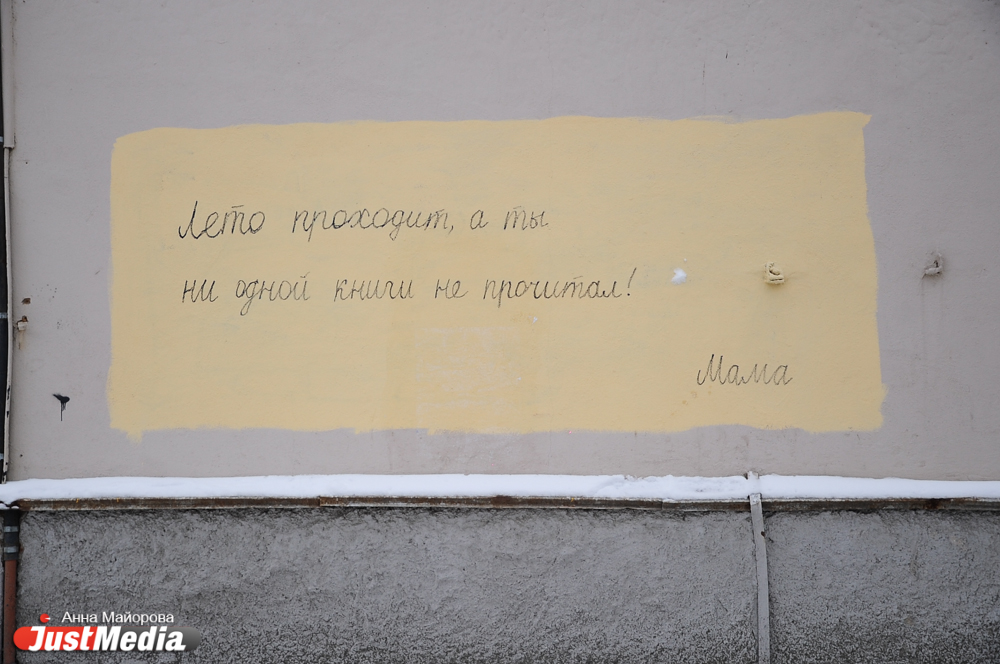 Лето проходит, а ты
ни одной книги не прочитал!
Мама
Анна Майорова
JustMedia